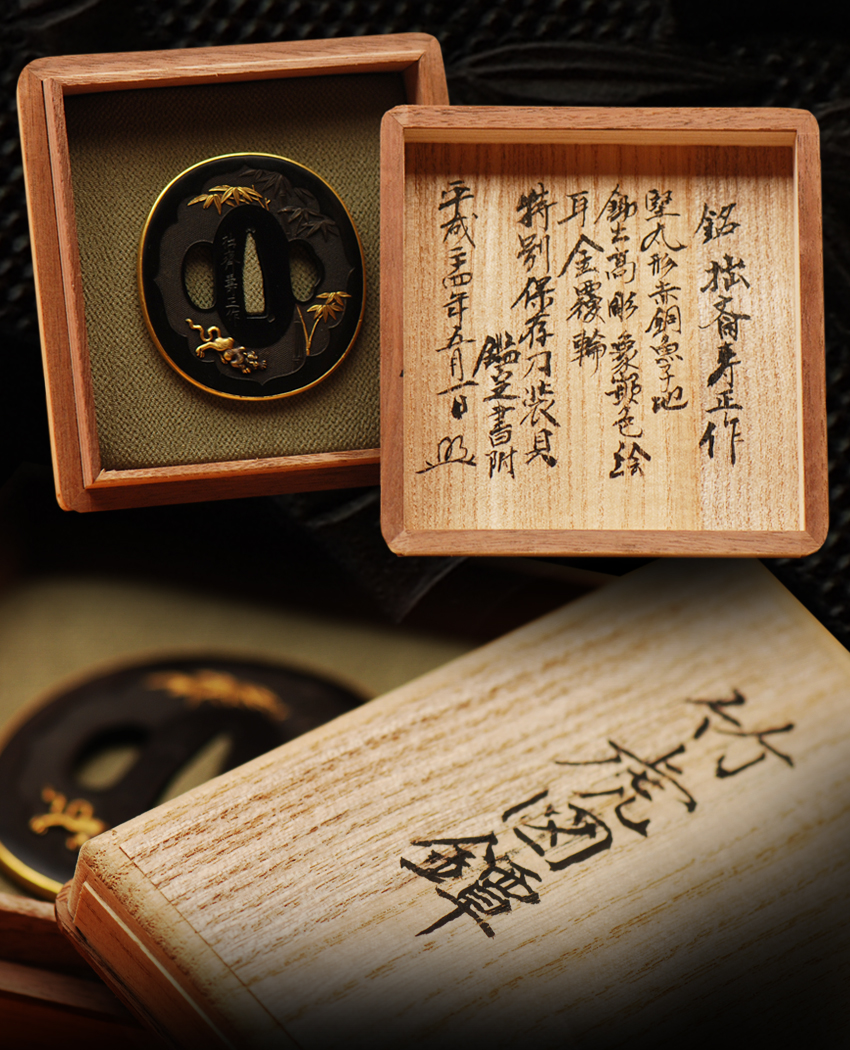 竹虎図鐔
銘 拙斎寿正作
竪丸形赤銅魚子地
鋤出高彫 象嵌色絵
耳 金覆輪
特別保存刀装具
鑑定書附
平成二十四年五月一日